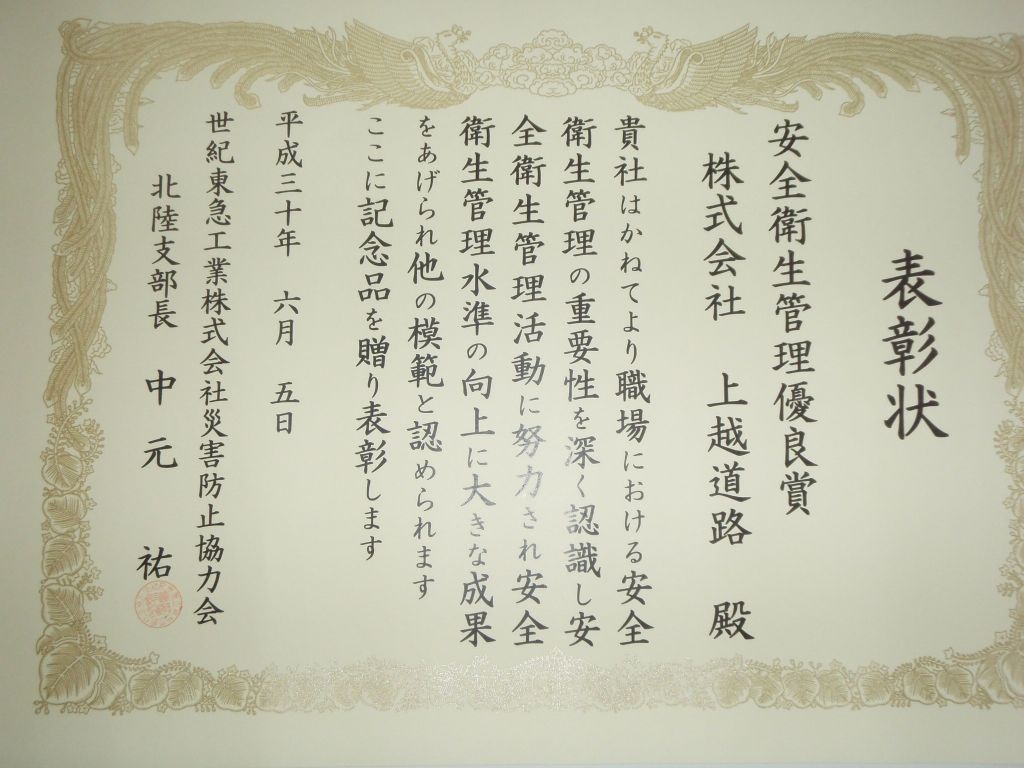 表彰状
安全衛生管理優良賞
株式会社 上越道路 殿
貴社はかねてより職場における安全
衛生管理の重要性を深く認識し安
全衛生管理活動に努力され安全
衛生管理水準の向上に大きな成果
をあげられ他の模範と認められます
ここに記念品を贈り表彰します
平成三十年 六月 五日
世紀東急工業株式会社災害防止協力会
北陸支部長 中元 祐